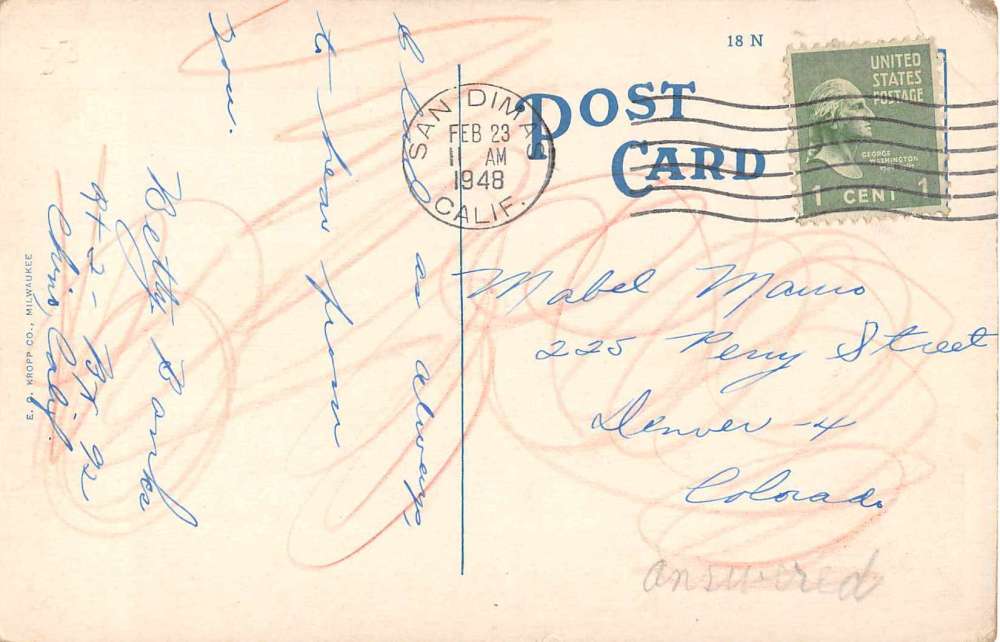 Glad as always
to hear from
you.
Betty Bonks
Rt-2- Bx 92
Chino, Calif.
E. C. KROPP CO., MILWAUKEE
18 N
POST
CARD
SAN DIMAS
FEB 23
11 AM
1948
CALIF.
UNITED
STATES
POSTAGE
GEORGE
WASHINGTON
1 CENT 1
Mabel
225 Perry Street
Denver -4
Colorado
answered